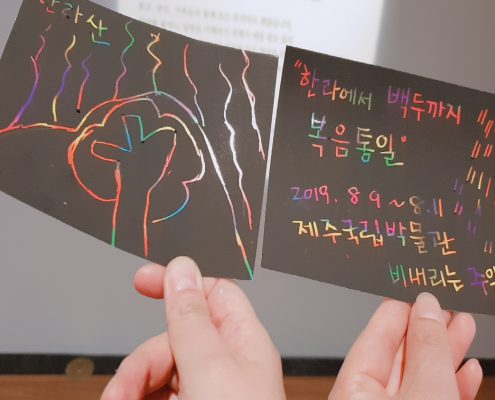 한라산
"한라에서 백두까지
복음통일"
2019. 8 9 ~ 8. 11
제주국립박물관
비내리는